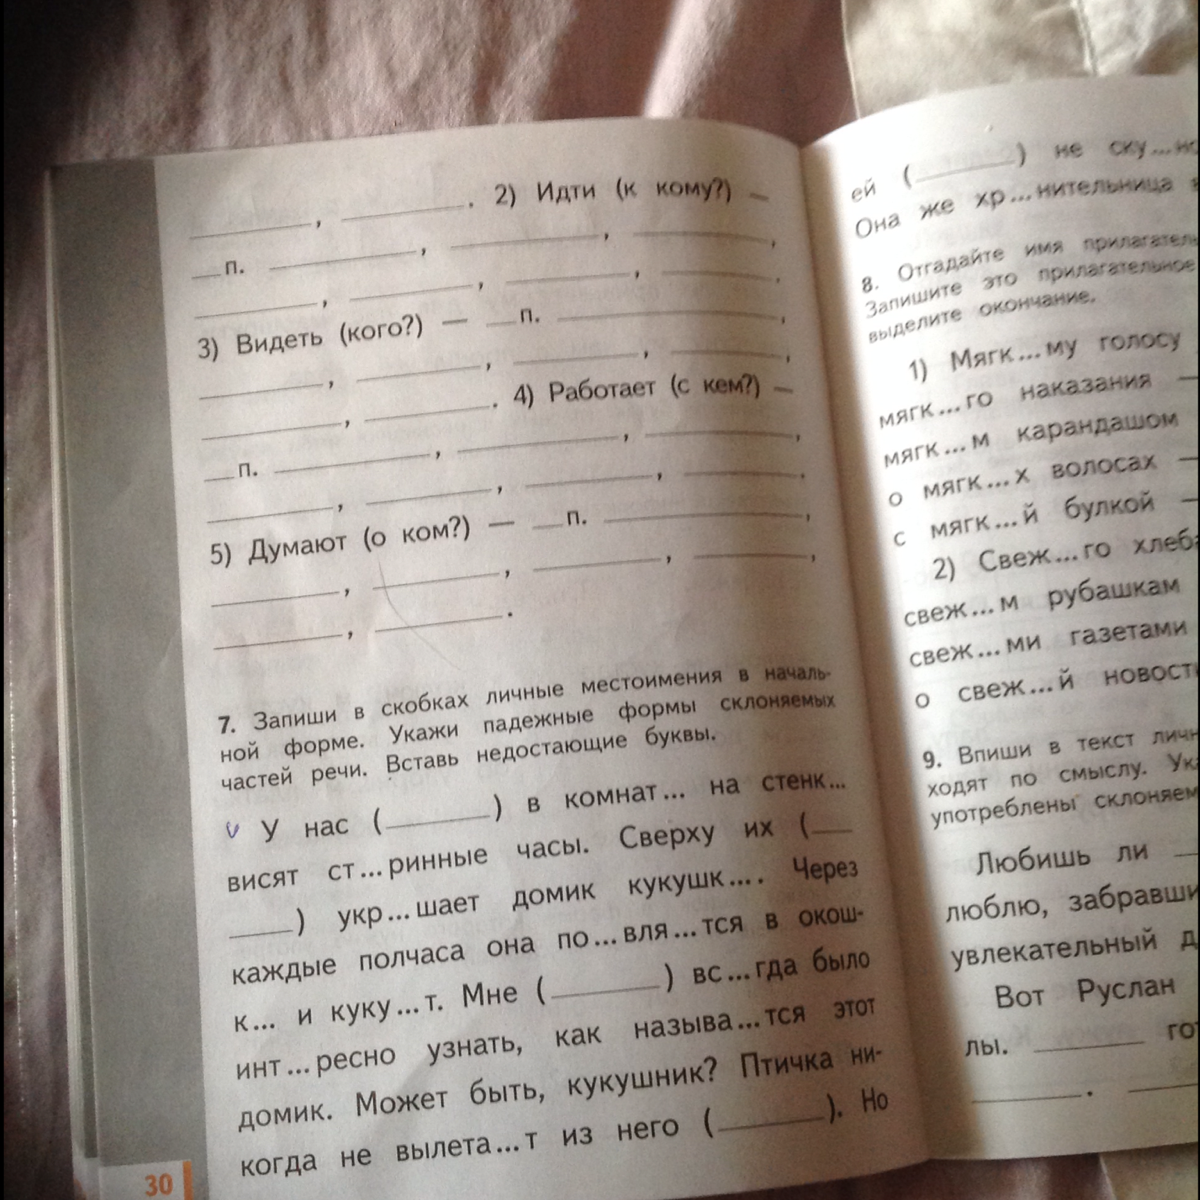 ______, ______. 2) Идти (к кому?) —
__п. ______, ______, ______,
______, ______, ______, ______.
3) Видеть (кого?) — __п. ______,
______, ______, ______, ______,
______, ______. 4) Работает (с кем?) —
__п. ______, ______, ______,
______, ______, ______, ______.
5) Думают (о ком?) — __п. ______,
______, ______, ______, ______,
______, ______.
7. Запиши в скобках личные местоимения в началь-
ной форме. Укажи падежные формы склоняемых
частей речи. Вставь недостающие буквы.
У нас (______) в комнат... на стенк...
висят ст...ринные часы. Сверху их (__
____) укр...шает домик кукушк.... Через
каждые полчаса она по...вля...тся в окош-
к... и куку...т. Мне (______) вс...гда было
инт...ресно узнать, как называ...тся этот
домик. Может быть, кукушник? Птичка ни-
когда не вылета...т из него (______). Но
30
ей (______) не ску...но
Она же хр...нительница
8. Отгадайте имя прилагатель
Запишите это прилагательное
выделите окончание.
1) Мягк...му голосу
мягк...го наказания —
мягк...м карандашом
о мягк...х волосах —
с мягк...й булкой —
2) Свеж...го хлеба
свеж...м рубашкам
свеж...ми газетами
о свеж...й новост
9. Впиши в текст личн
ходят по смыслу. Ука
употреблены склоняем
Любишь ли __
люблю, забравши
увлекательный д
Вот Руслан
лы. ______ го
______. ____